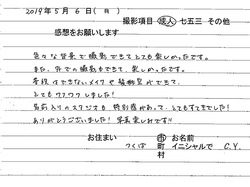 2019年 5月 6日( 月 )
撮影項目 成人 七五三 その他
感想をお願いします
色々な背景で撮影できてとても楽しかったです。
また、外での撮影もできて、楽しかったです。
普段はできない、メイクや髪型ができて、
とてもワクワクしました!
名前入りのスタジオも特別感があって、とてもすてきでした!
ありがとうございました! 写真楽しみです!!
お住まい 市 お名前
つくば 町 イニシャルで C.Y
村